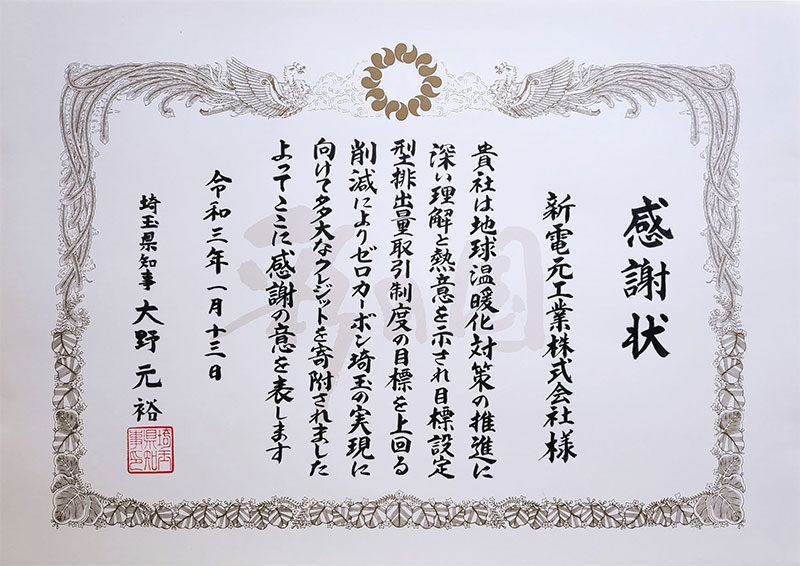 感謝状
新電元工業株式会社様
貴社は地球温暖化対策の推進に
深い理解と熱意を示され目標設定
型排出量取引制度の目標を上回る
削減によりゼロカーボン埼玉の実現に
向けて多大なクレジットを寄附されました
よってここに感謝の意を表します
令和三年一月十三日
埼玉県知事 大野元裕
埼玉県知事之印
彩の国